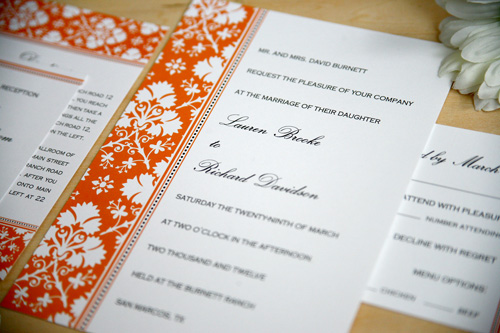 RECEPTION
ROAD 12,
YOU REACH
THEN TAKE
ANCH ROAD
ON IN 12
THE LEFT.
ALLROOM OF
MAIN STREET
RANCH ROAD
AFTER YOU
ONTO MAIN
LEFT AT 22
MR. AND MRS. DAVID BURNETT
REQUEST THE PLEASURE OF YOUR COMPANY
AT THE MARRIAGE OF THEIR DAUGHTER
Lauren Brooke
to
Richard Davidson
SATURDAY THE TWENTY-NINTH OF MARCH
AT TWO O'CLOCK IN THE AFTERNOON
TWO THOUSAND AND TWELVE
HELD AT THE BURNETT RANCH
SAN MARCOS, TX
d by March
ATTEND WITH PLEASURE
NUMBER ATTENDING
DECLINE WITH REGRET
MENU OPTIONS
CHICKEN
BEEF